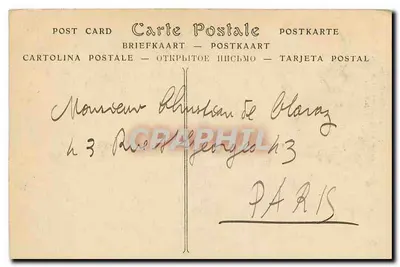 POST CARD Carte Postale POSTKARTE
BRIEFKAART — POSTKAART
CARTOLINA POSTALE — ОТКРЫТОЕ ПИСЬМО — TARJETA POSTAL
Monsieur Christian de
43 Rue St Georges 43
PARIS
CARTAPHILIE